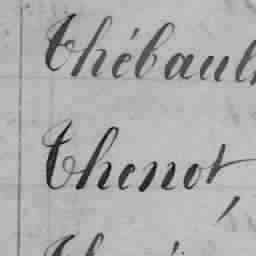 Thébaul
Thenot,